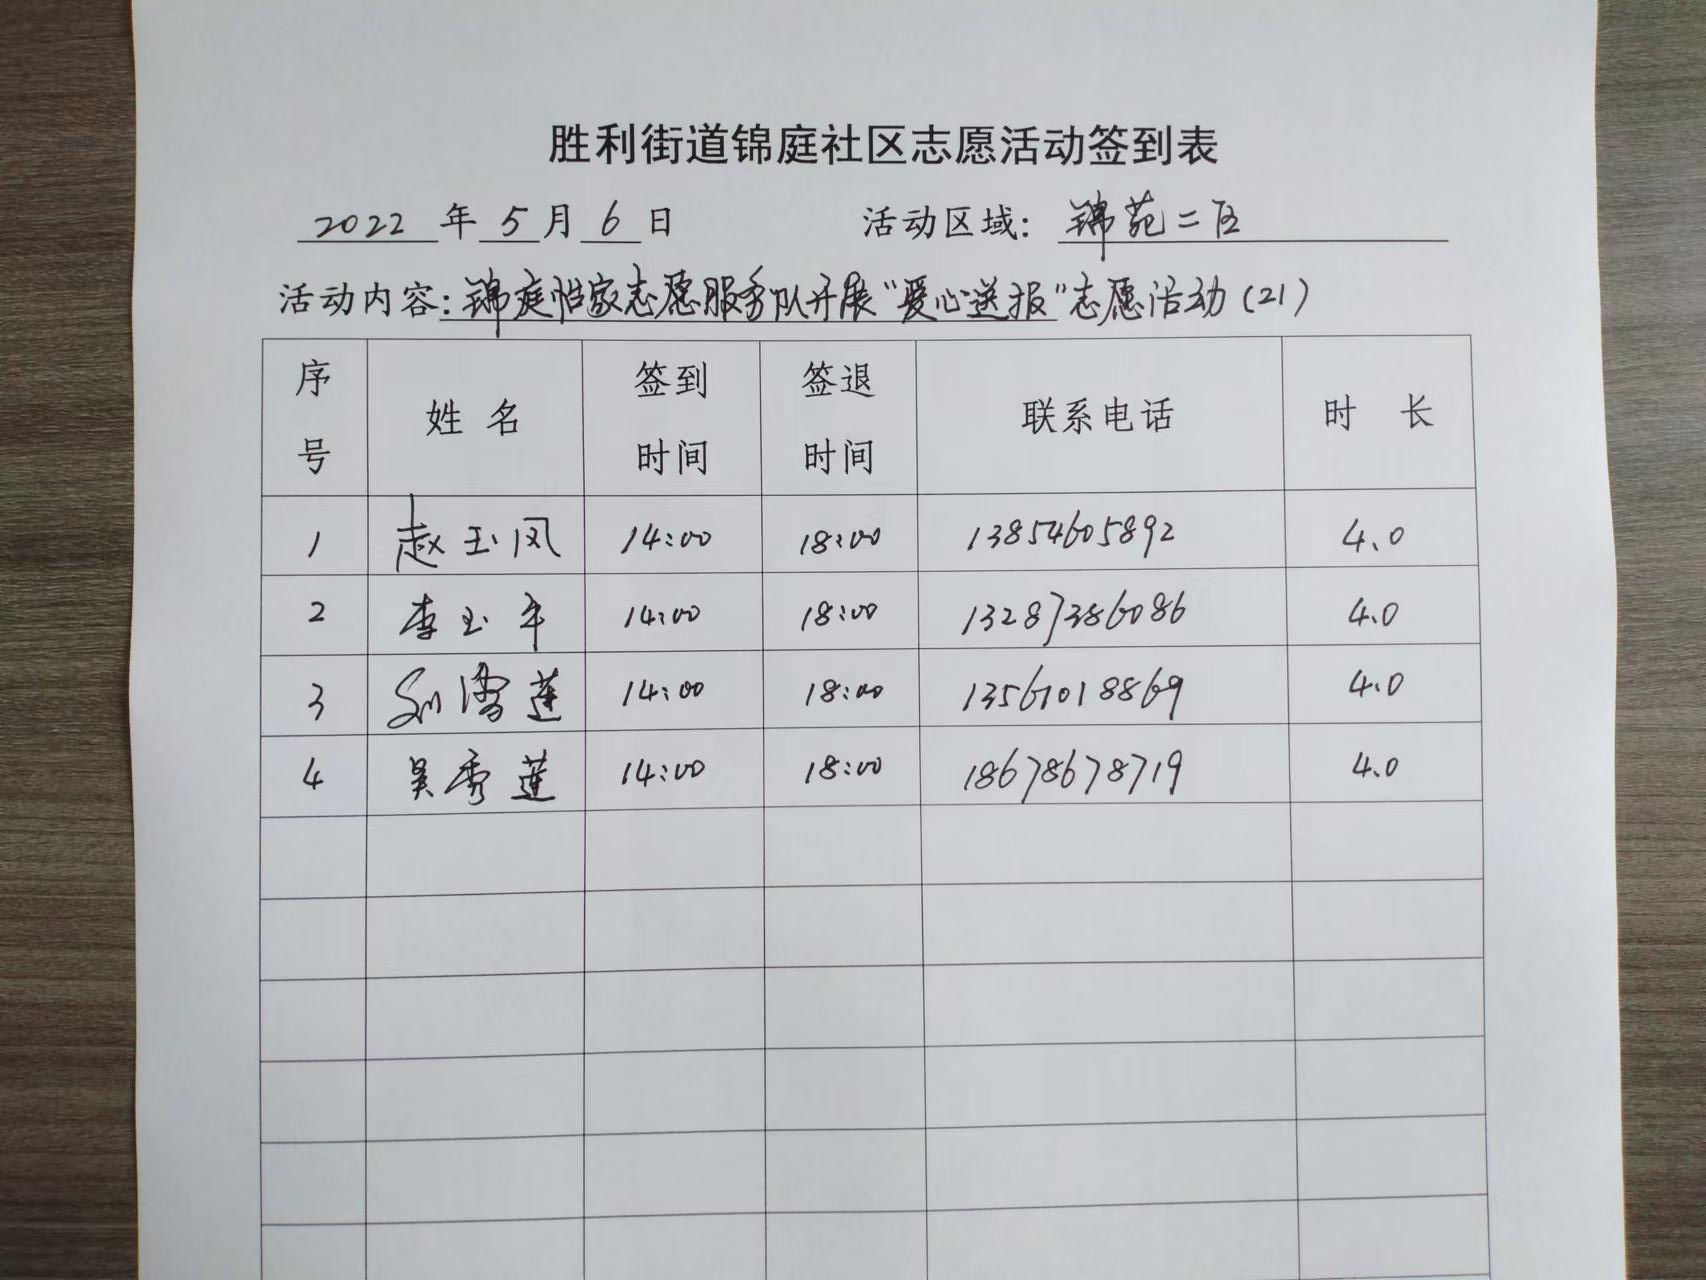 胜利街道锦庭社区志愿活动签到表
2022 年 5 月 6 日 活动区域：锦苑二区
活动内容：锦庭怡家志愿服务队开展“爱心送报”志愿活动（21）
序号 姓名 签到时间 签退时间 联系电话 时长
1 赵玉凤 14:00 18:00 13854605892 4.0
2 李玉平 14:00 18:00 13287386086 4.0
3 刘雪莲 14:00 18:00 13561018869 4.0
4 吴秀莲 14:00 18:00 18678678719 4.0